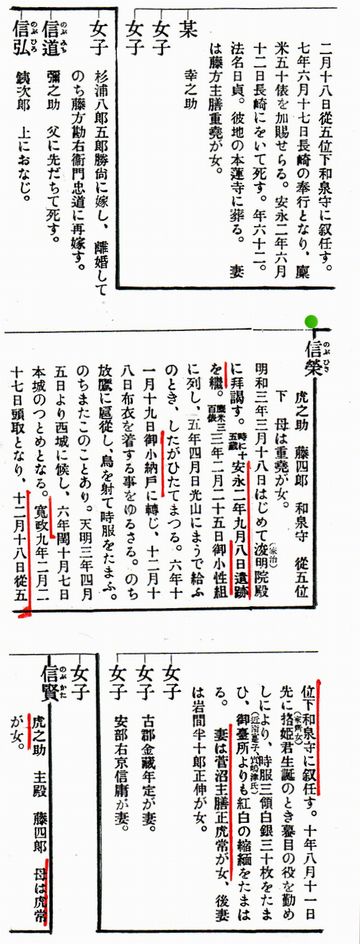 二月十八日從五位下和泉守に叙任す。
七年六月十七日長崎の奉行となり、廩
米五十俵を加賜せらる。安永二年六月
十二日長崎にをいて死す。年六十二。
法名日貞。彼地の本蓮寺に葬る。 妻
は藤方主膳重堯が女。
某 幸之助
女子
女子
女子 杉浦八郎五郎勝尚に嫁し、離婚して
のち藤方勘右衞門忠道に再嫁す。
信道 のぶみち 彌之助 父に先だちて死す。
信弘 のぶひろ 銕次郎 上におなじ。
信榮 のぶひさ 虎之助 藤四郎 和泉守 從五位
下 母は重堯が女。
明和三年三月十八日はじめて浚明院殿(家治)
に拜謁す。時に十五歲 安永二年九月八日遺跡
を繼、廩米三百俵 三年二月二十五日御小性組
に列し、五年四月日光山にまうで給ふ
のとき、したがひたてまつる。六年十
一月十九日御小納戶に轉じ、十二月十
八日布衣を着する事をゆるさる。のち
放鷹に扈從し、鳥を射て時服をたまふ。
のちまたこのことあり。天明三年四月
五日より西城に候し、六年閏十月七日
本城のつとめとなる。寬政九年二月二
十七日頭取となり、十二月十八日從五
位下和泉守に叙任す。十年八月十一日
先に𢭐姬君(家齊女)生誕のとき蟇目の役を勤め
しにより、時服三領白銀三十枚をたま
ひ、御臺所(近衞寔子、實島津氏)よりも紅白の縮緬をたまは
る。 妻は菅沼主膳正虎常が女、後妻
は岩間半十郎正伸が女。
女子
女子 古郡金藏年定が妻。
女子 安部右京信庸が妻。
女子
信賢 のぶかた 虎之助 主殿 藤四郎 母は虎常
が女。